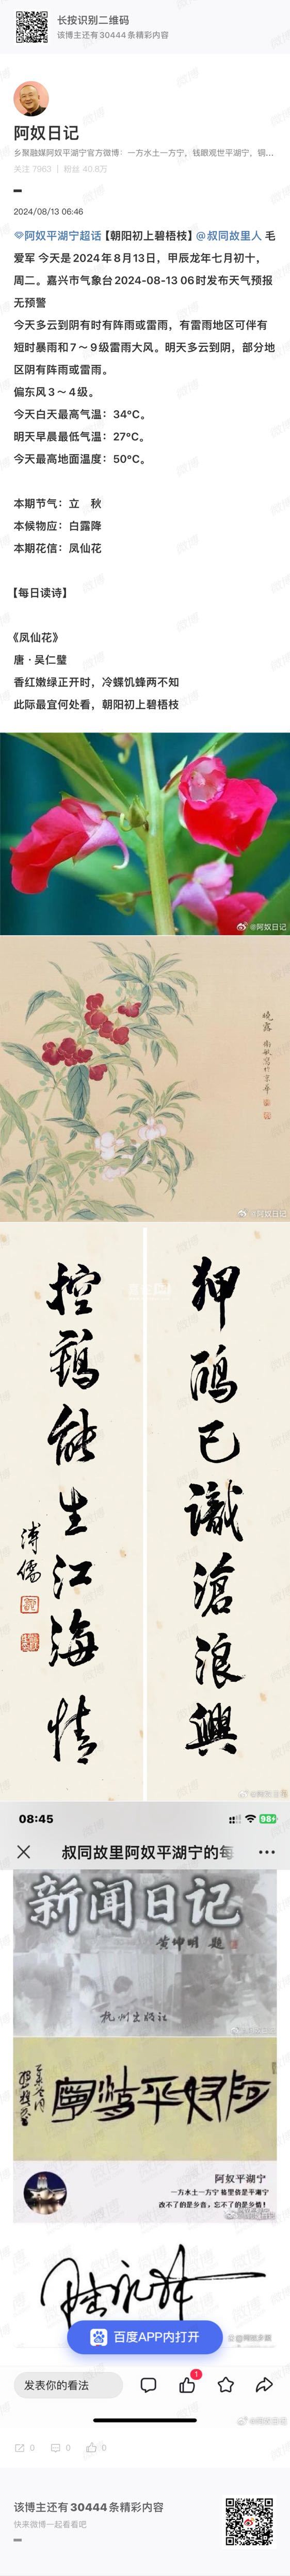 长按识别二维码
该博主还有30444条精彩内容
阿奴日记
乡聚融媒阿奴平湖宁官方微博：一方水土一方宁，钱眼观世平湖宁，铜...
关注 7963 | 粉丝 40.8万
2024/08/13 06:46
阿奴平湖宁超话【朝阳初上碧梧枝】@叔同故里人 毛
爱军 今天是2024年8月13日，甲辰龙年七月初十，
周二。嘉兴市气象台2024-08-13 06时发布天气预报
无预警
今天多云到阴有时有阵雨或雷雨，有雷雨地区可伴有
短时暴雨和7～9级雷雨大风。明天多云到阴，部分地
区阴有阵雨或雷雨。
偏东风3～4级。
今天白天最高气温：34°C。
明天早晨最低气温：27°C。
今天最高地面温度：50°C。
本期节气：立 秋
本候物应：白露降
本期花信：凤仙花
【每日读诗】
《凤仙花》
唐·吴仁璧
香红嫩绿正开时，冷蝶饥蜂两不知
此际最宜何处看，朝阳初上碧梧枝
@阿奴日记
晓露
@阿奴日记
狎鸥已识沧浪兴
控鹤能生江海情
溥儒
08:45
98
叔同故里阿奴平湖宁的每
新闻日记
黄坤明 题
杭州出版社
阿奴平湖宁
阿奴平湖宁
一方水土一方宁 格里侪是平湖宁
改不了的是乡音，忘不了的是乡情！
百度APP内打开
发表你的看法
1
0
0
0
该博主还有30444条精彩内容
快来微博一起看看吧